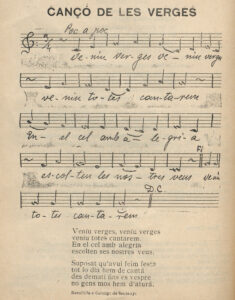 CANÇÓ DE LES VERGES
Poc a poc
Ve-niu ver-ges ve-niu verges
ve-niu to-tes can-ta-rem
En el cel amb a-le-gri-a
Fi
es-col-ten les nos-tres veus veniu
D.C.
to-tes can-ta-rem
Veniu verges, veniu verges
veniu totes cantarem.
En el cel amb alegria
escolten ses nostres veus.
Suposat qu'avui feim festa
tot lo dia hem de cantá
des demati fins es vespre
no gens mos hem d'aturá.